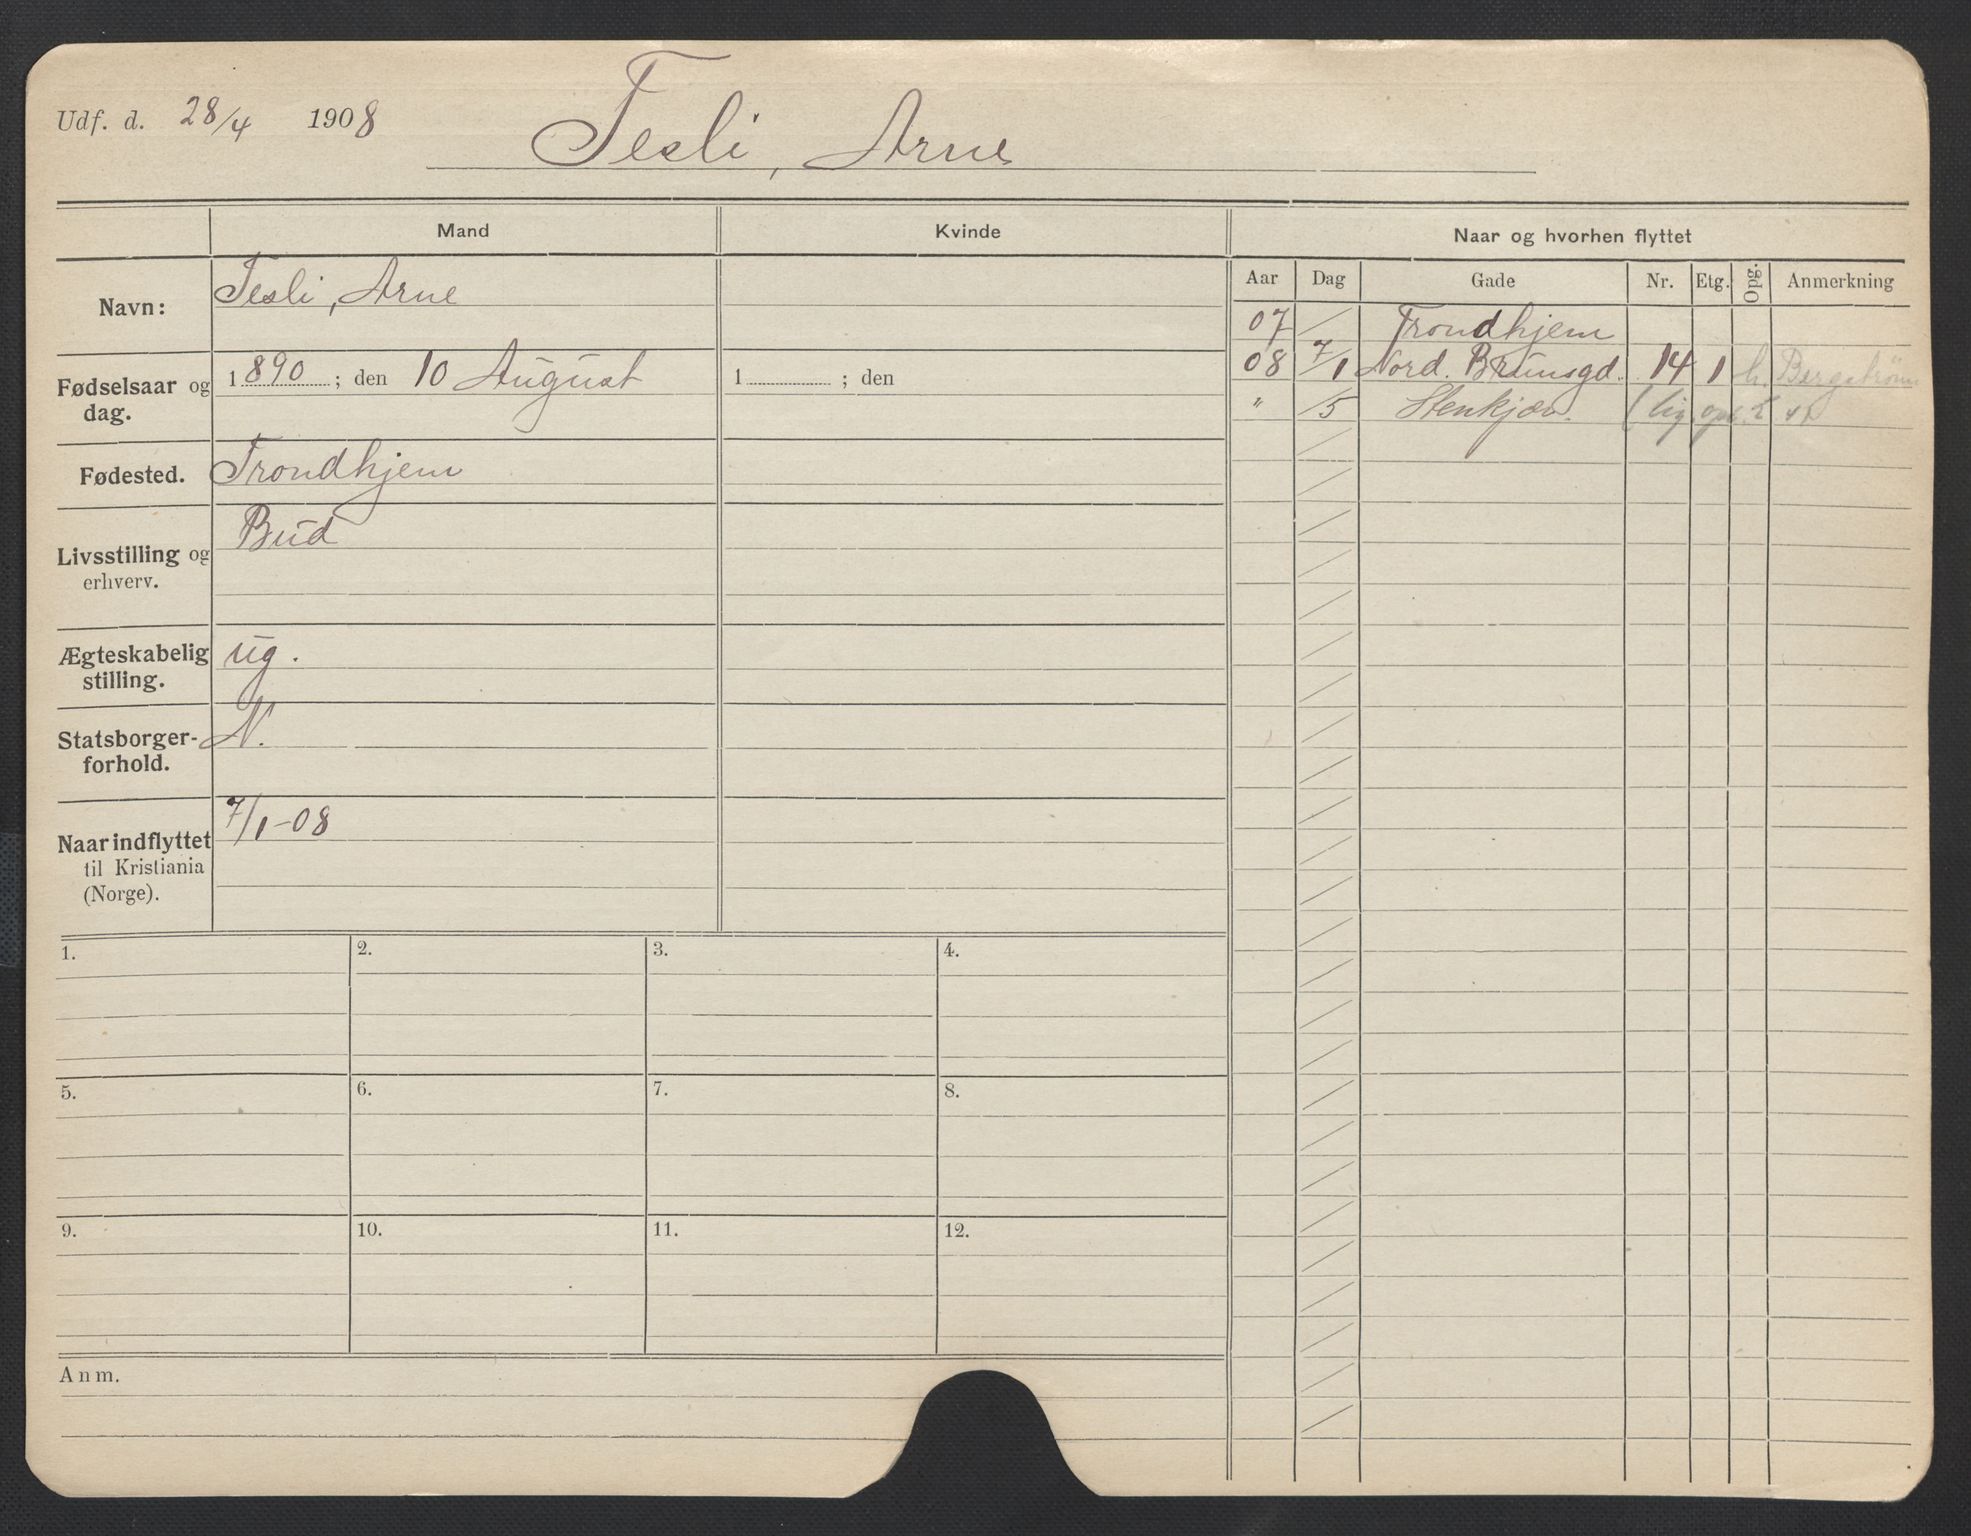 Udf. d. 28/4 1908
Tesli, Arne
Mand
Kvinde
Naar og hvorhen flyttet
Aar Dag Gade Nr. Etg. Opg. Anmerkning
Navn: Tesli, Arne
Fødselsaar og dag. 1890; den 10 August
1 ; den
Fødested. Trondhjem
Livsstilling og erhverv. Bud
Ægteskabelig stilling. ug.
Statsborger-forhold. N.
Naar indflyttet til Kristiania (Norge). 7/1-08
07 / Trondhjem
08 7/1 Nord. Brunsgd. 14 1 h. Bergstrøm
" /5 Stenkjær.
1. 2. 3. 4.
5. 6. 7. 8.
9. 10. 11. 12.
Anm.